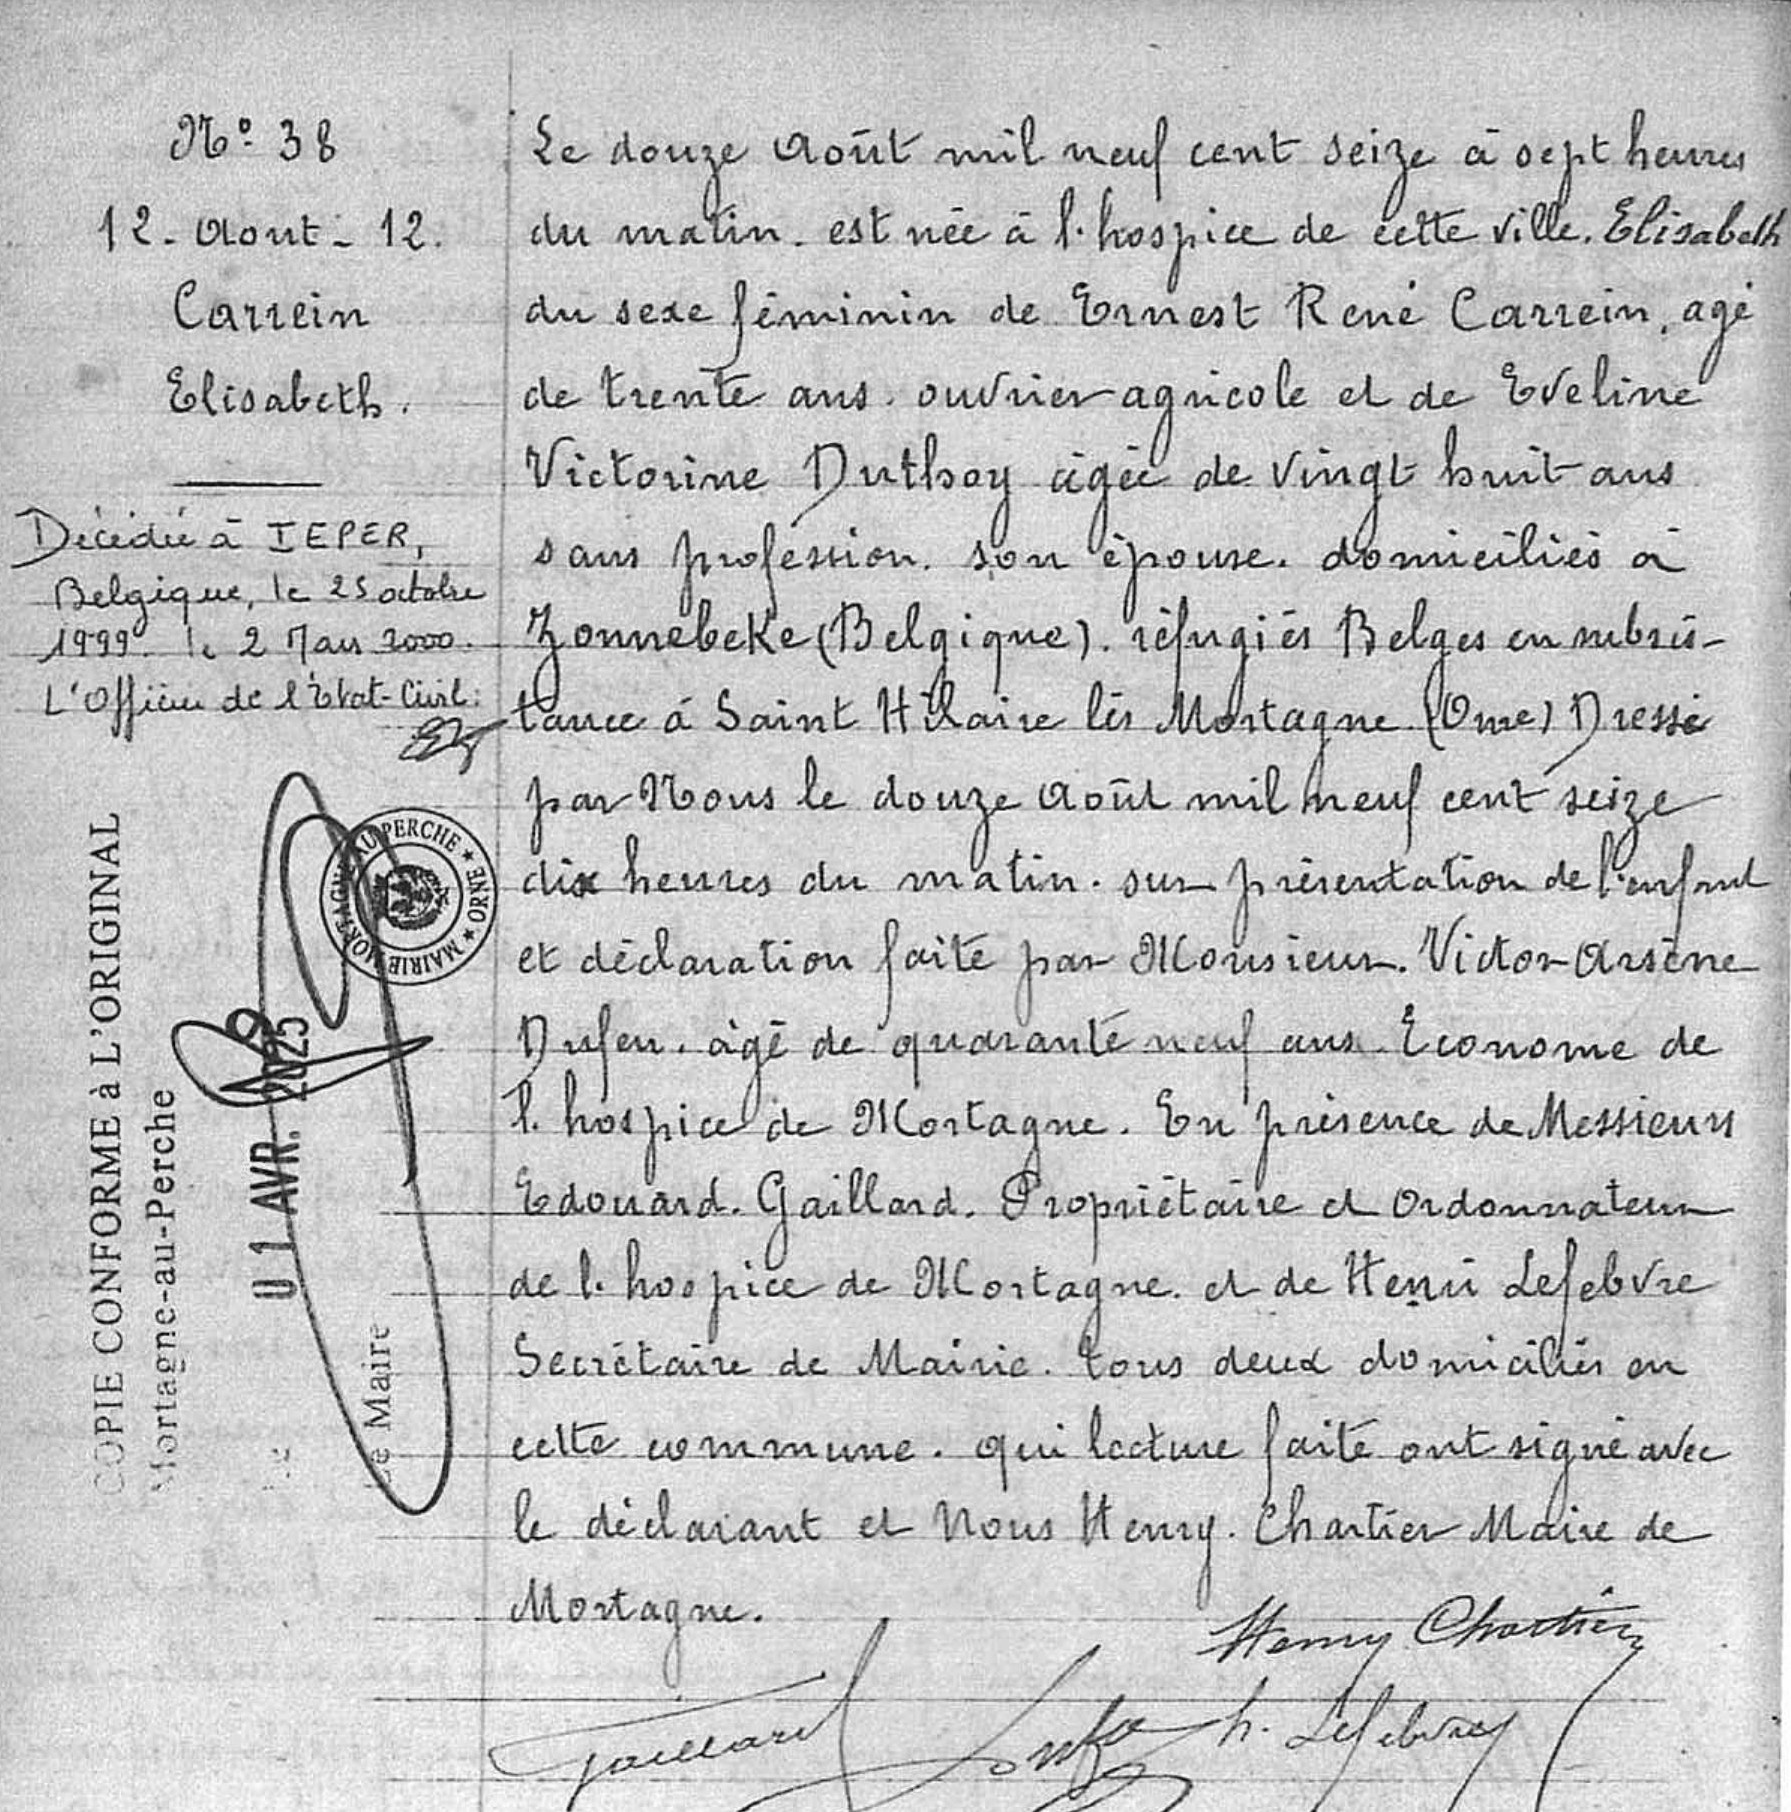 N° 38
12 - Aout - 12.
Carrein
Elisabeth.
Décédée à IEPER,
Belgique, le 25 octobre
1999. le 2 Mars 2000.
L'Officier de l'Etat-Civil:
COPIE CONFORME à L'ORIGINAL
Mortagne-au-Perche
01 AVR. 2025
Le Maire
MAIRIE MORTAGNE AU PERCHE ★ ORNE ★
Le douze Août mil neuf cent seize à sept heures
du matin. est née à l'hospice de cette ville. Elisabeth
du sexe féminin de Ernest René Carrein, agé
de trente ans. ouvrier agricole et de Eveline
Victorine Duthoy âgée de vingt huit ans
sans profession. son épouse. domiciliés à
Zonnebeke (Belgique). réfugiés Belges en subsis-
tance à Saint Hilaire lès Mortagne (Orne) Dressé
par Nous le douze Août mil neuf cent seize
dix heures du matin. sur présentation de l'enfant
et déclaration faite par Monsieur. Victor Arsène
Dufeu. âgé de quarante neuf ans. Econome de
l'hospice de Mortagne. En présence de Messieurs
Edouard. Gaillard. Propriétaire et Ordonnateur
de l'hospice de Mortagne. et de Henri Lefebvre
Secrétaire de Mairie. tous deux domiciliés en
cette commune. qui lecture faite ont signé avec
le déclarant et Nous Henry. Chartier Maire de
Mortagne.
Henry Chartier
Gaillard Dufeu h. Lefebvre